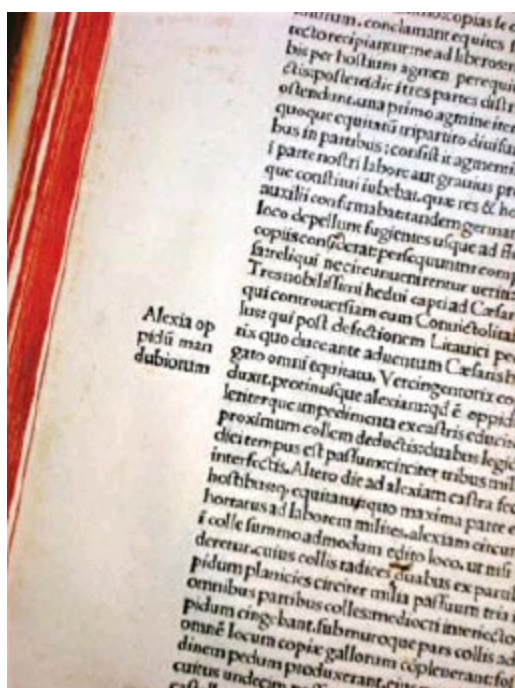 tecto recipiantur: ne ad liberos
bis per hostium agmen perequi
ctis: postero die i tres partes distri
ostendunt, una primo agmine iter
quoque equitatū tripartito diuisum
bus in partibus: consistit agmen: i
i parte nostri labore aut grauius pre
que constitui iubebat. quæ res & ho
auxilii confirmabat: tandem german
loco depellunt fugientes usque ad flu
copiis consederat: persequuntur comp
sa: reliqui ne circunuenirentur ueriti
Tres nobilissimi hedui capti ad Cæsar
qui controuersiam cum Conuictolitan
lus: qui post defectionem Litauici ped
rix quo duce ante aduentum Cæsaris h
gato omni equitatu, Vercingentorix co
duxit, protinusque alexiam: qd ē oppidū
leriterque impedimenta ex castris educi
proximum collem deductis: duabus legio
diei tempus est passum: circiter tribus mil
interfectis. Altero die ad alexiam castra fec
hostibusq; equitatu: quo maxima parte e
hortatus ad laborem milites, alexiam circun
i colle summo admodum edito loco, ut nisi
deretur. cuius collis radices duabus ex partib
pidum planicies circiter milia passuum tria i
omnibus partibus colles: mediocri interiecto
pidum cingebant. sub muroque pars collis ad
omnē locum copiæ gallorum cōpleuerant: fos
dinem pedum produxerant. eius
cuitus undecim
Alexia op
pidū man
dubiorum